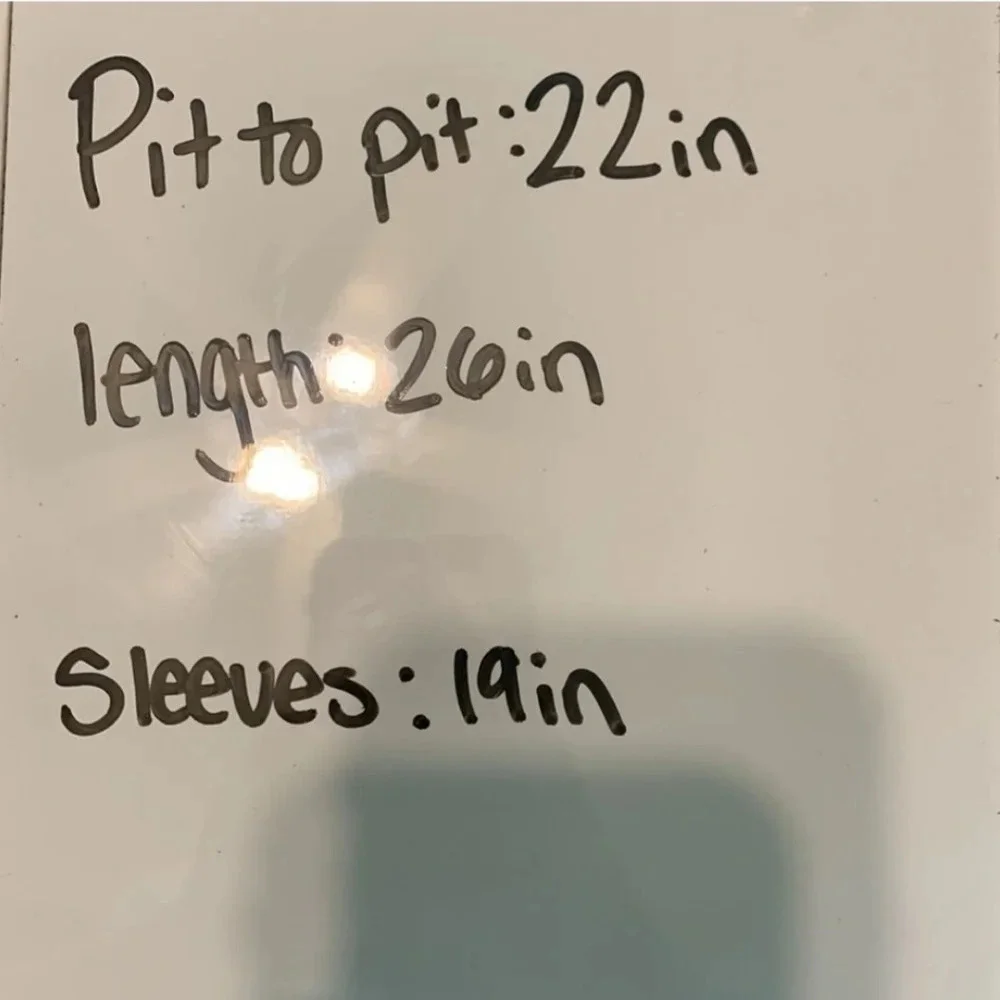 Pit to pit: 22in
length: 26in
Sleeves: 19in